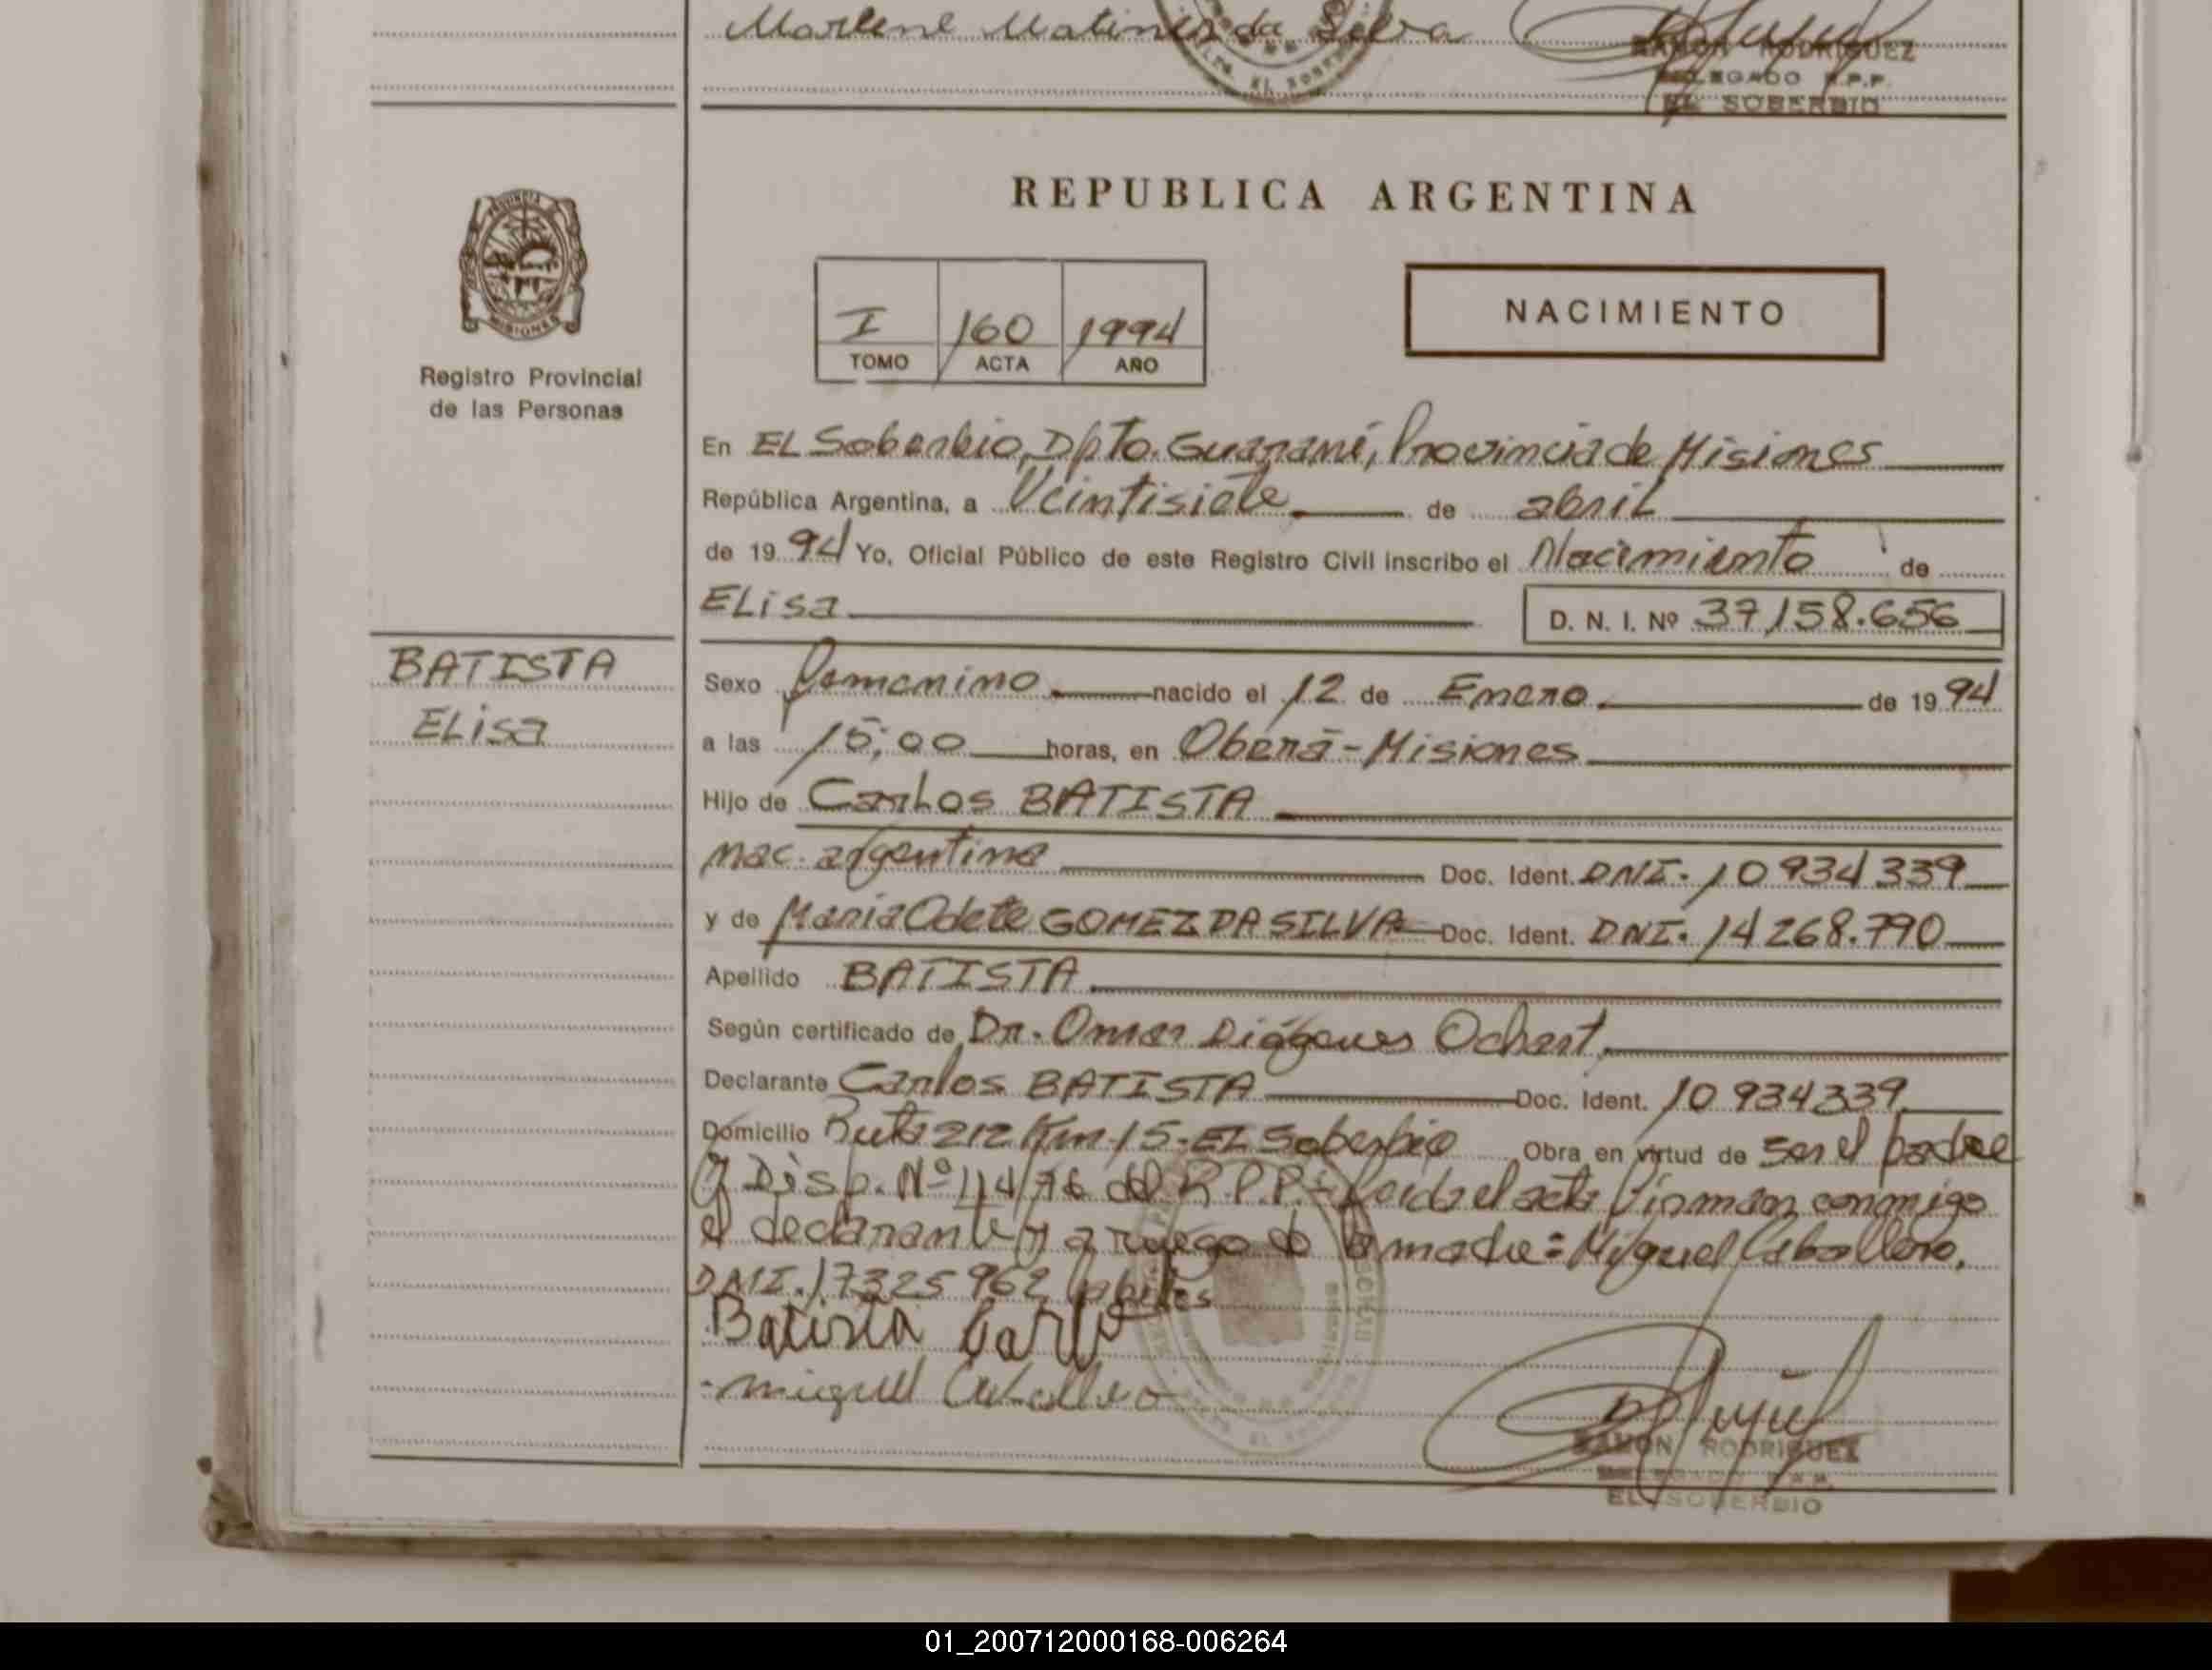 Marlene Matines da Silva
RAMON RODRIGUEZ
DELEGADO R.P.P.
EL SOBERBIO
PROVINCIA DE
MISIONES
Registro Provincial
de las Personas
REPUBLICA ARGENTINA
I 160 1994
TOMO ACTA AÑO
NACIMIENTO
En EL Soberbio, Dpto. Guaraní, Provincia de Misiones
República Argentina, a Veintisiete de abril
de 1994 Yo, Oficial Público de este Registro Civil inscribo el Nacimiento de
ELisa D. N. I. Nº 37,158.656
BATISTA
ELisa
Sexo Femenino nacido el 12 de Enero de 1994
a las 15,00 horas, en Oberá - Misiones
Hijo de Carlos BATISTA
nac. argentina Doc. Ident. DNI. 10 934 339
y de Maria Odete GOMEZ DA SILVA Doc. Ident. DNI. 14 268.790
Apellido BATISTA
Según certificado de Dr. Omar Diógenes Ochast
Declarante Carlos BATISTA Doc. Ident. 10 934339
Domicilio Ruta 212 Km 15 - EL Soberbio Obra en virtud de ser el padre
y Disp. Nº 114/76 del R.P.P. - Leida el acta firman conmigo
el declarante y a ruego de la madre = Miguel Caballero,
DNI. 17325962
Batista Carlo
- miguel Caballero
RAMON RODRIGUEZ
DELEGADO R.P.P.
EL SOBERBIO
01_200712000168-006264